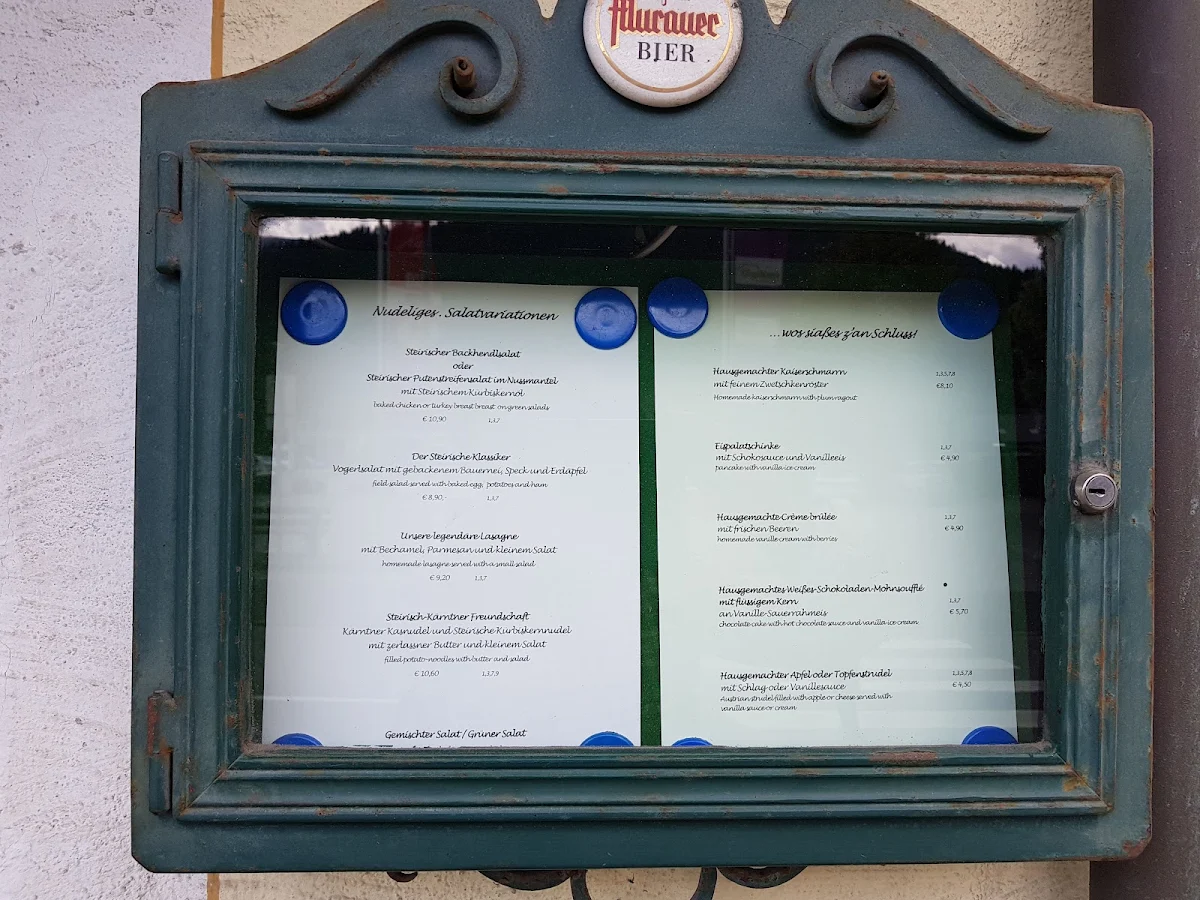 Murauer
BIER
Nudeliges. Salatvariationen
Steirischer Backhendlsalat
oder
Steirischer Putenstreifensalat im Nussmantel
mit Steirischem Kürbiskernöl
baked chicken or turkey breast breast on green salads
€ 10,90 1,3,7
Der Steirische Klassiker
Vogerlsalat mit gebackenem Bauernei, Speck und Erdäpfel
field salad served with baked egg, potatoes and ham
€ 8,90,- 1,3,7
Unsere legendäre Lasagne
mit Bechamel, Parmesan und kleinem Salat
homemade lasagne served with a small salad
€ 9,20 1,3,7
Steirisch-Kärntner Freundschaft
Kärntner Kasnudel und Steirische Kürbiskernnudel
mit zerlassner Butter und kleinem Salat
filled potato-noodles with butter and salad
€ 10,60 1,3,7,9
Gemischter Salat / Grüner Salat
...wos siaßes z'an Schluss!
Hausgemachter Kaiserschmarrn 1,3,5,7,8
mit feinem Zwetschkenröster €8,10
Homemade kaiserschmarrn with plum ragout
Eispalatschinke 1,3,7
mit Schokosauce und Vanilleeis € 4,90
pancake with vanilla ice cream
Hausgemachte Crème brûlée 1,3,7
mit frischen Beeren € 4,90
homemade vanille cream with berries
Hausgemachtes Weißes-Schokoladen-Mohnsoufflé
mit flüssigem Kern 1,3,7
an Vanille-Sauerrahmeis € 5,70
chocolate cake with hot chocolate sauce and vanilla ice cream
Hausgemachter Apfel oder Topfenstrudel 1,3,5,7,8
mit Schlag oder Vanillesauce € 4,50
Austrian strudel filled with apple or cheese served with
vanilla sauce or cream